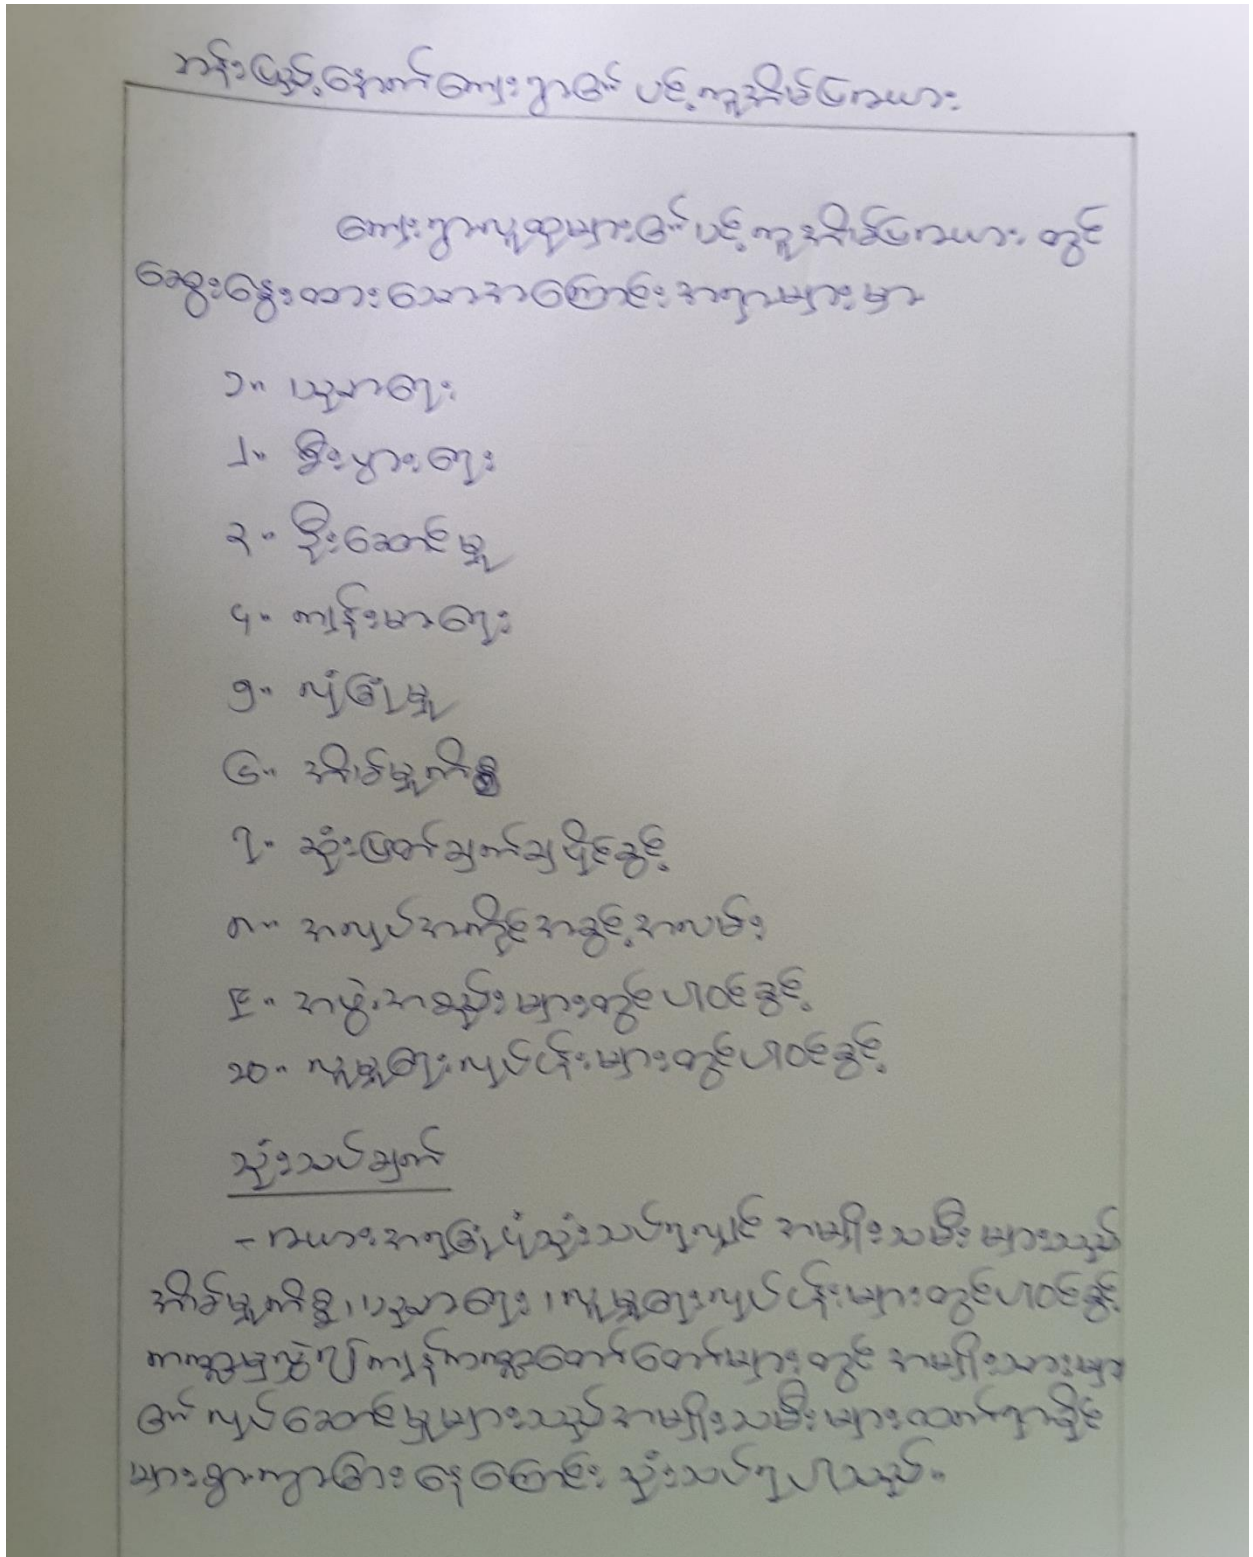 ကန်းမြင့်နောက်ကျေးရွာ၏ ပင့်ကူအိမ်ပြဇယား
ကျေးရွာလူထုများ၏ ပင့်ကူအိမ်ပြဇယား တွင်
ဆွေးနွေးထားသောအကြောင်းအရာများမှာ
၁။ ပညာရေး
၂။ စီးပွားရေး
၃။ ဦးဆောင်မှု
၄။ ကျန်းမာရေး
၅။ လုံခြုံမှု
၆။ အိမ်မှုကိစ္စ
၇။ ဆုံးဖြတ်ချက်ချပိုင်ခွင့်
၈။ အလုပ်အကိုင်အခွင့်အလမ်း
၉။ အဖွဲ့အစည်းများတွင်ပါဝင်ခွင့်
၁၀။ လူမှုရေးလုပ်ငန်းများတွင်ပါဝင်ခွင့်
သုံးသပ်ချက်
- ဇယားအရခြုံငုံသုံးသပ်ရလျှင် အမျိုးသမီးများသည်
အိမ်မှုကိစ္စ၊ ပညာရေး၊ လူမှုရေးလုပ်ငန်းများတွင်ပါဝင်ခွင့်
ကဏ္ဍမှလွဲ၍ကျန်ကဏ္ဍတော်တော်များများတွင် အမျိုးသားများ
၏ လုပ်ဆောင်မှုများသည်အမျိုးသမီးများထက်ရာခိုင်
များစွာကွာခြားနေကြောင်း သုံးသပ်ရပါသည်။